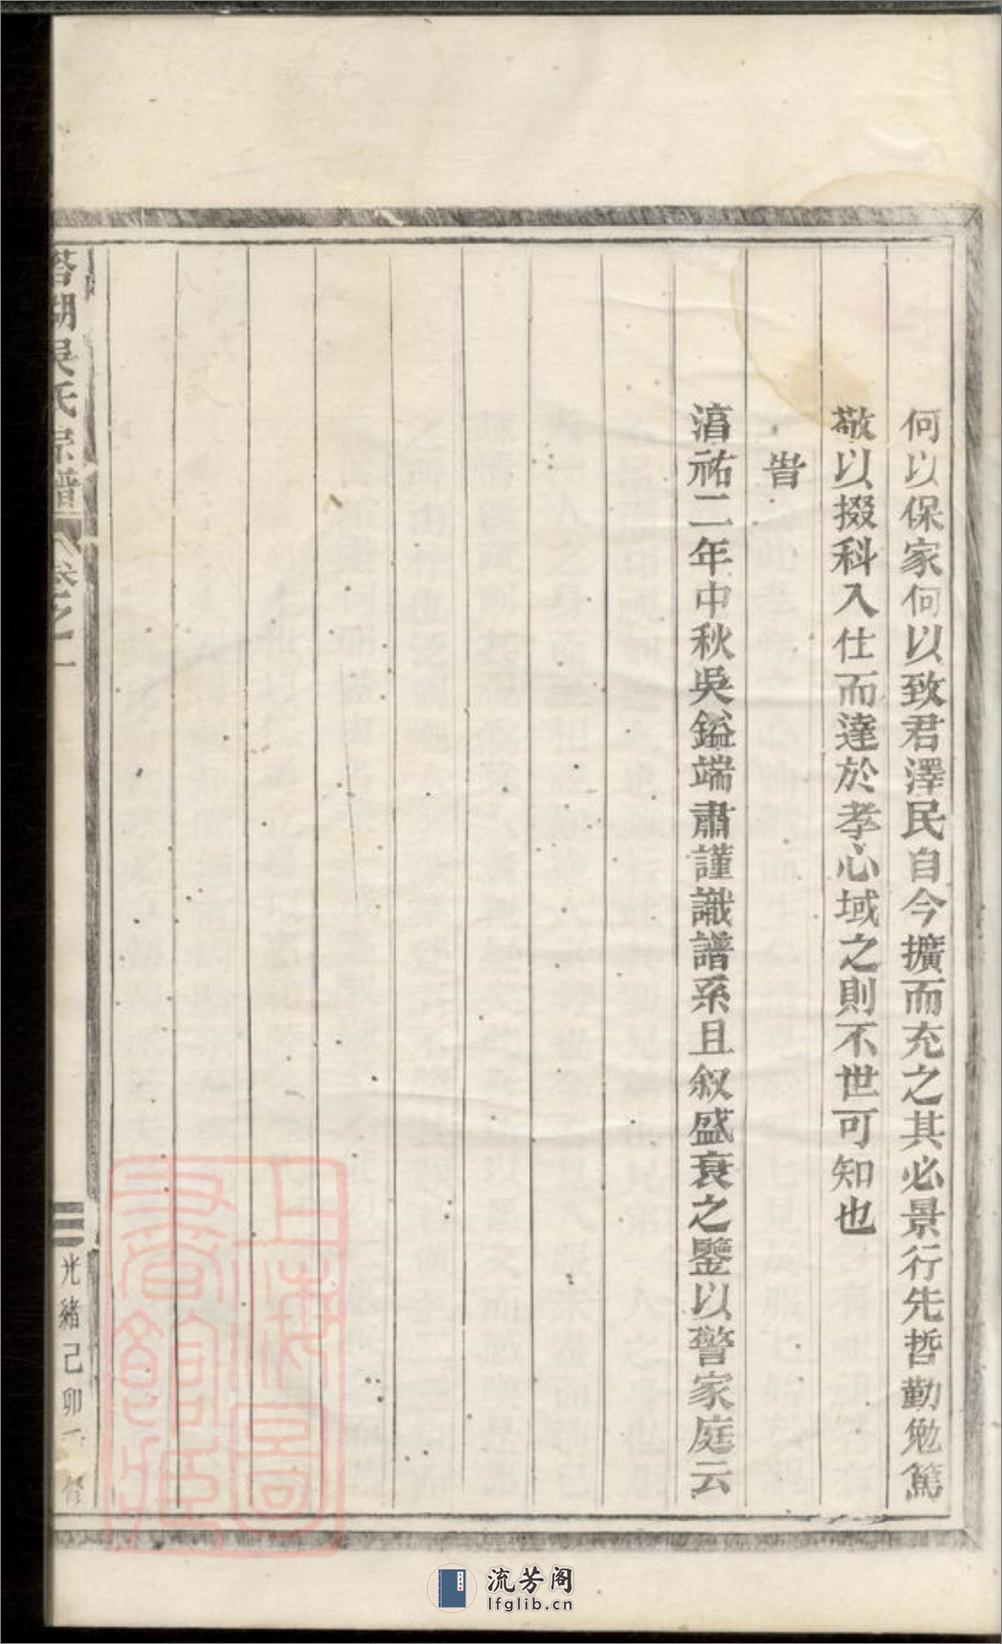 何以保家何以致君澤民自今擴而充之其必景行先哲勤勉篤
敬以掇科入仕而達於孝心域之則不世可知也
旹
淯祐二年中秋吳鎰端肅謹識譜系且叙盛衰之鑒以警家庭云
湖吳氏宗譜
卷之一
三
光緒己卯 修
上海圖書館藏
流芳阁
lfglib.cn